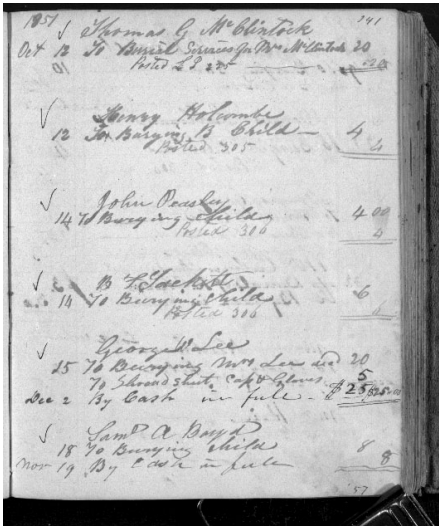 1851 Thomas G McClintock 141
Oct 12 To Burial Services for Mrs McClintock 20
10 Posted L P 255
Henry Holcombe
12 To Burying B Child 4
Posted 305 4
John Peasley
14 To Burying Child 4 00
Posted 306 4
B F Jackett
14 To Burying Child 6
Posted 306 6
George W. Lee
15 To Burying Mrs Lee 20
To Shroud Sheet, Cap & Gloves 5
Dec 2 By Cash in full $25
Saml A Boyd
18 To Burying Child 8
Nov 19 By Cash in full 8